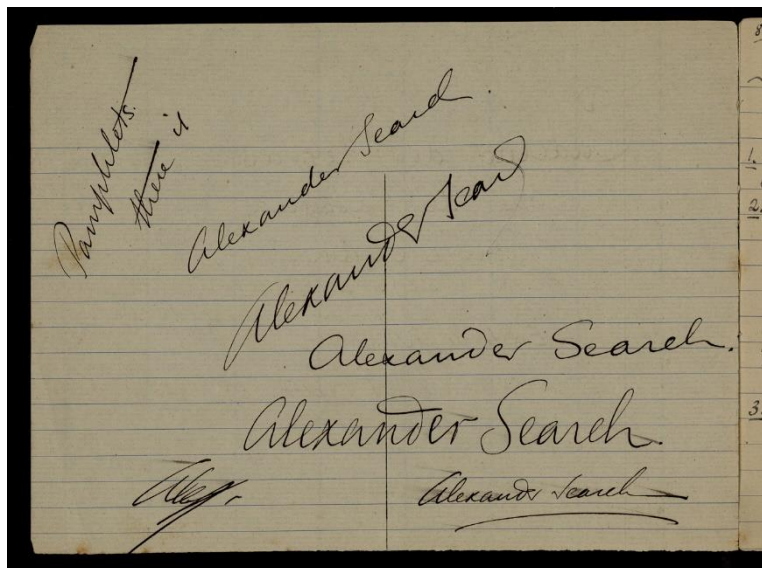 Pamphlets.
there is
Alexander Search.
Alexander Search
Alexander Search.
Alexander Search.
Alexander Search
8
1.
2.
3.